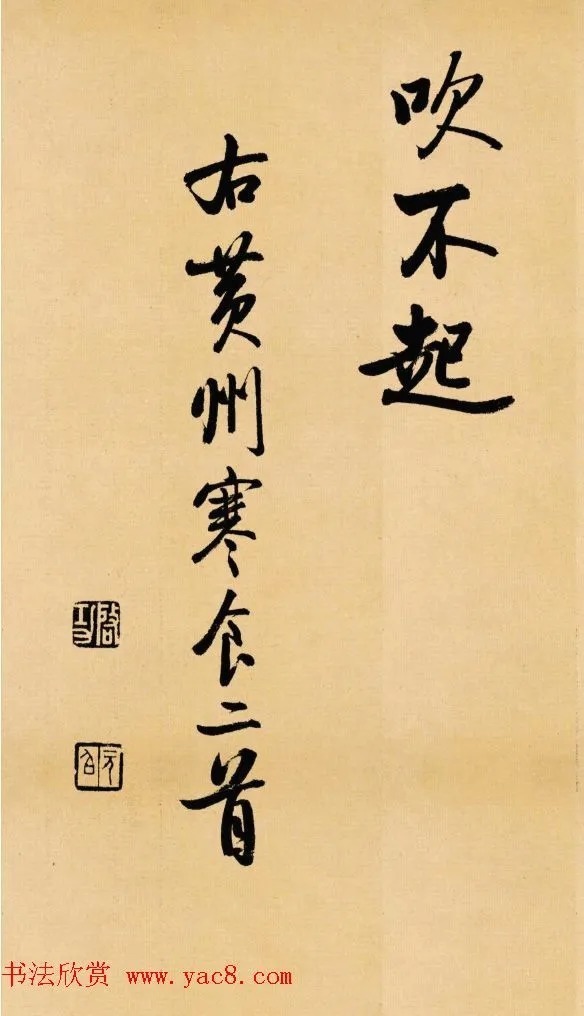 吹不起
右黄州寒食二首
啓功
元白
书法欣赏 www.yac8.com